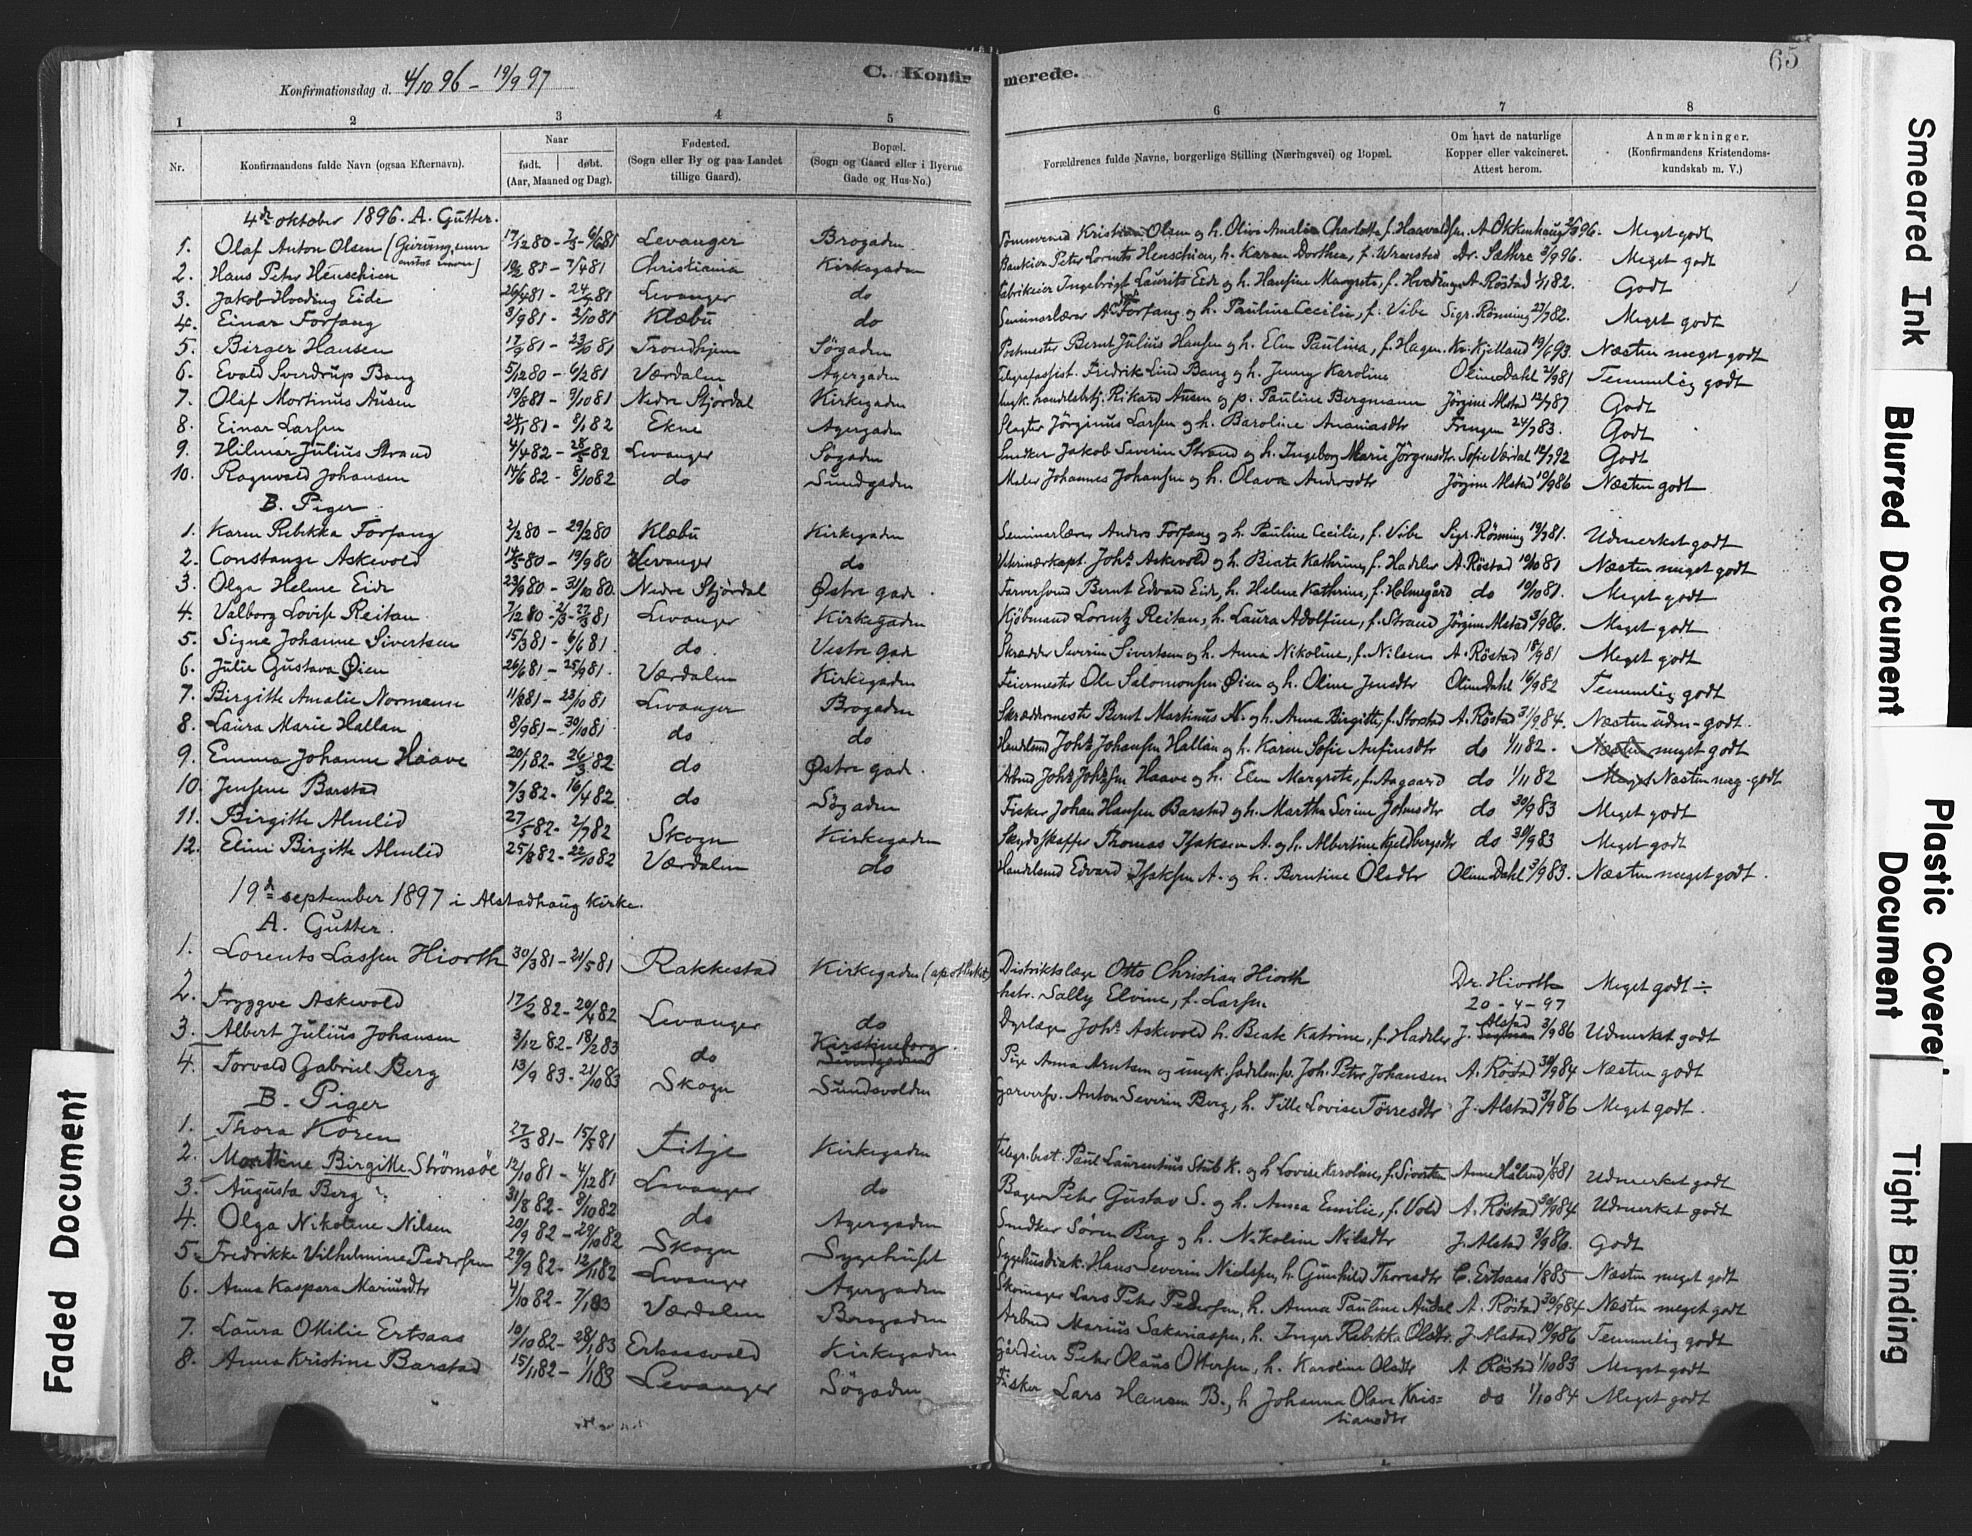 65
C. Konfirmerede.
Konfirmationsdag d. 4/10 96 - 19/9 97
1 2 3 4 5 6 7 8
Nr. Konfirmandens fulde Navn (ogsaa Efternavn). Naar født. døbt. (Aar, Maaned og Dag). Fødested. (Sogn eller By og paa Landet tillige Gaard). Bopæl. (Sogn og Gaard eller i Byerne Gade og Hus-No.) Forældrenes fulde Navne, borgerlige Stilling (Næringsvei) og Bopæl. Om havt de naturlige Kopper eller vakcineret. Attest herom. Anmærkninger. (Konfirmandens Kristendomskundskab m. V.)
4de oktober 1896. A. Gutter.
1. Olaf Anton Olsen 17/12 80 - Levanger Brogaden Kristian Olsen og h. Olive Amalia Charlotte f. Haavaldsen A. Okkenhaug 96. Meget godt
2. Hans Peter Henschien 81 - 81 Christiania Kirkegaden Bankier Peter Lorents Henschien, h. Karen Dorthea, f. Wrensted Dr. Sæthre 3/9 96. Meget godt
3. Jakob Hveding Eide 26/4 81 - 81 Levanger do Fabrikeier Ingebrigt Laurits Eide og h. Hansine Margrete, f. Hveding A. Röstad 82. Godt
4. Einar Forfang 3/9 81 - 2/10 81 Klæbu do Seminarlærer Forfang og h. Pauline Cecilie, f. Vibe Sigr. Rönning 22/7 82. Meget godt
5. Birger Hansen 17/9 81 - 23/10 81 Trondhjem Sögaden Postmester Bernt Julius Hansen og h. Elen Paulina, f. Hagen. Kr. Kjelland 19/6 93. Næsten meget godt
6. Evald Sverdrup Bang 5/12 80 - 6/2 81 Værdalen Agergaden Telegrafassist. Fredrik Lind Bang og h. Jenny Karoline Oline Dahl 2/9 81 Temmelig godt
7. Olaf Mortinus Ausen 19/8 81 - 9/10 81 Nedre Stjördal Kirkegaden Ungk. handelsbtj. Rikard Ausen og p. Pauline Bergmann Jörgine Alstad 12/7 87 Godt
8. Einar Larsen 24/11 81 - 8/1 82 Ekne Agergaden Slagter Jörginus Larsen og h. Baroline Ananiasdtr 24/7 83. Godt
9. Hilmar Julius Strand 4/4 82 - 28/5 82 Levanger Sögaden Snedker Jakob Severin Strand og h. Ingeborg Marie Jörgensdtr. Sofie Værdal 12/7 92 Godt
10. Ragnvald Johansen 14/6 82 - 8/10 82 do Sundgaden Maler Johannes Johansen og h. Olava Andersdtr Jörgine Alstad 10/9 86 Næsten godt
B. Piger
1. Karen Rebekka Forfang 2/2 80 - 29/2 80 Klæbu Kirkegaden Seminarlærer Anders Forfang og h. Pauline Cecilie, f. Vibe Sigr. Rönning 19/7 81. Udmerket godt
2. Constanze Askevold 80 - 19/9 80 Levanger do Veterinærkapt. Johs. Askevold og h. Beate Kathrine, f. Hadeler A. Röstad 19/10 81 Næsten meget godt
3. Olga Helene Eide 23/9 80 - 31/10 80. Nedre Stjördal Østre gad. Farversvend Bernt Edvard Eide, h. Helene Kathrine, f. Holmegård do 19/10 81. Meget godt
4. Valborg Lovise Reitan 7/12 80 - 81 Levanger Kirkegaden Kjöbmand Lorentz Reitan, h. Laura Adolfine, f. Strand Jörgine Alstad 3/9 86. Meget godt
5. Signe Johanne Sivertsen 15/3 81 - 6/6 81 do. Vestre gad Skrædder Severin Sivertsen og h. Anna Nikoline, f. Nilsen A. Röstad 18/9 81 Meget godt
6. Julie Gustava Øien 26/6 81 - 25/9 81. Værdalen Kirkegaden Feiermester Ole Salomonsen Øien og h. Oline Jensdtr Oline Dahl 16/9 82 Temmelig godt
7. Birgitte Amalie Normann 11/8 81 - 23/10 81 Levanger Brogaden Skræddermester Bernt Martinus N. og h. Anna Birgitte, f. Storstad A. Röstad 3/9 84. Næsten udm- godt.
8. Laura Marie Hallan 8/9 81 - 30/10 81 do do Handlsmd Johs. Johansen Hallan og h. Karen Sofie Anfinsdtr do 1/11 82. Næsten meget godt
9. Emma Johanne Haave 20/1 82 - 26/3 82 do Østre gad. Arbmd Johs. Haave og h. Elen Margrete, f. Aagaard do 1/11 82 Meget Næsten meg. godt
10. Jensene Barstad 7/3 82 - 16/4 82 do Sögaden Fisker Johan Hansen Barstad og h. Martha Serine Johnsdtr do 30/9 83 Meget godt
11. Birgitte Almlid 27/5 82 - 2/7 82 Skogn Kirkegaden Thomas Isaksen A. og h. Albertine Kjeldbergsdtr do 30/9 83 Meget godt
12. Elini Birgitte Almlid 25/8 82 - 22/10 82 Værdalen do Handelsmd Edvard Isaksen A. og h. Berntine Olsdtr Oline Dahl 3/9 83. Næsten meget godt.
19de september 1897 i Alstadhaug Kirke.
A. Gutter.
1. Lorents Lassen Hiorth 30/3 81 - 21/5 81 Rakkestad Kirkegaden (apotheket) Distriktslæge Otto Christian Hiorth Dr. Hiorth Meget godt
hstr. Sally Elvine, f. Larsen 20-4-97
2. Tryggve Askevold 17/2 82 - 20/4 82 Levanger do Dyrlæge Johs. Askevold h. Beate Katrine, f. Hadeler J. Alstad 3/9 86 Udmerket godt
3. Albert Julius Johansen 3/12 82 - 18/2 83 do Kirstineborg. Sundgaden Pige Anna Arntsen og ungk. Joh. Peter Johansen A. Röstad 30/9 84 Næsten godt
4. Torvald Gabriel Berg 13/9 83 - 21/10 83 Skogn Sundsvolden Garversv. Anton Severin Berg, h. Tille Lovise Tørresdtr J. Alstad 3/9 86 Meget godt.
B. Piger
1. Thora Koren 27/3 81 - 15/5 81 Fitje Kirkegaden Telegr. best. Paul Laurentius Stub K. og h Lovise Karoline, f. Sivertsen 81 Udmerket godt
2. Birgitte Strömsöe 12/10 81 - 4/12 81 Levanger do Bager Peter Gustav S. og h. Anna Emilie, f. Vold A. Röstad 30/9 84 Udmerket godt
3. Augusta Berg 31/8 82 - 8/10 82 do Agergaden Smedker Sören Berg og h. Nikoline Nilsdtr J. Alstad 3/9 86. Godt
4. Olga Nikoline Nilsen 20/9 82 - 29/10 82 Skogn Sygehuset Sygehusdiak. Hans Severin Nielsen, h. Gunhild Thoresdtr C. Ertsaas 1/8 85 Næsten meget godt
5. Fredrikke Vilhelmine Pedersen 29/9 82 - 12/11 82 Levanger Agergaden Skomager Lars Peter Pedersen, h. Anna Pauline Audal A. Röstad 30/9 84 Næsten meget godt
6. Anna Kaspara Mariusdtr 4/10 82 - 7/1 83 Værdalen Brogaden Arbmd Marius Sakariassen, h. Inger Rebekka Olsdtr. J. Alstad 10/9 86 Temmelig godt
7. Laura Otilie Ertsaas 10/10 82 - 28/1 83 Ertsaasvald Kirkegaden Gårdeier Peter Olaus Ottersen, h. Karoline Olsdtr A Röstad 1/10 83 Meget godt
8. Anna Kristine Barstad 15/11 82 - 1/1 83 Levanger Sögaden Fisker Lars Hansen B., h Johanna Olava Kris= do 1/10 84 Meget godt
tiansdtr
Smeared Ink
Blurred Document
Plastic Covered Document
Tight Binding
Faded Document